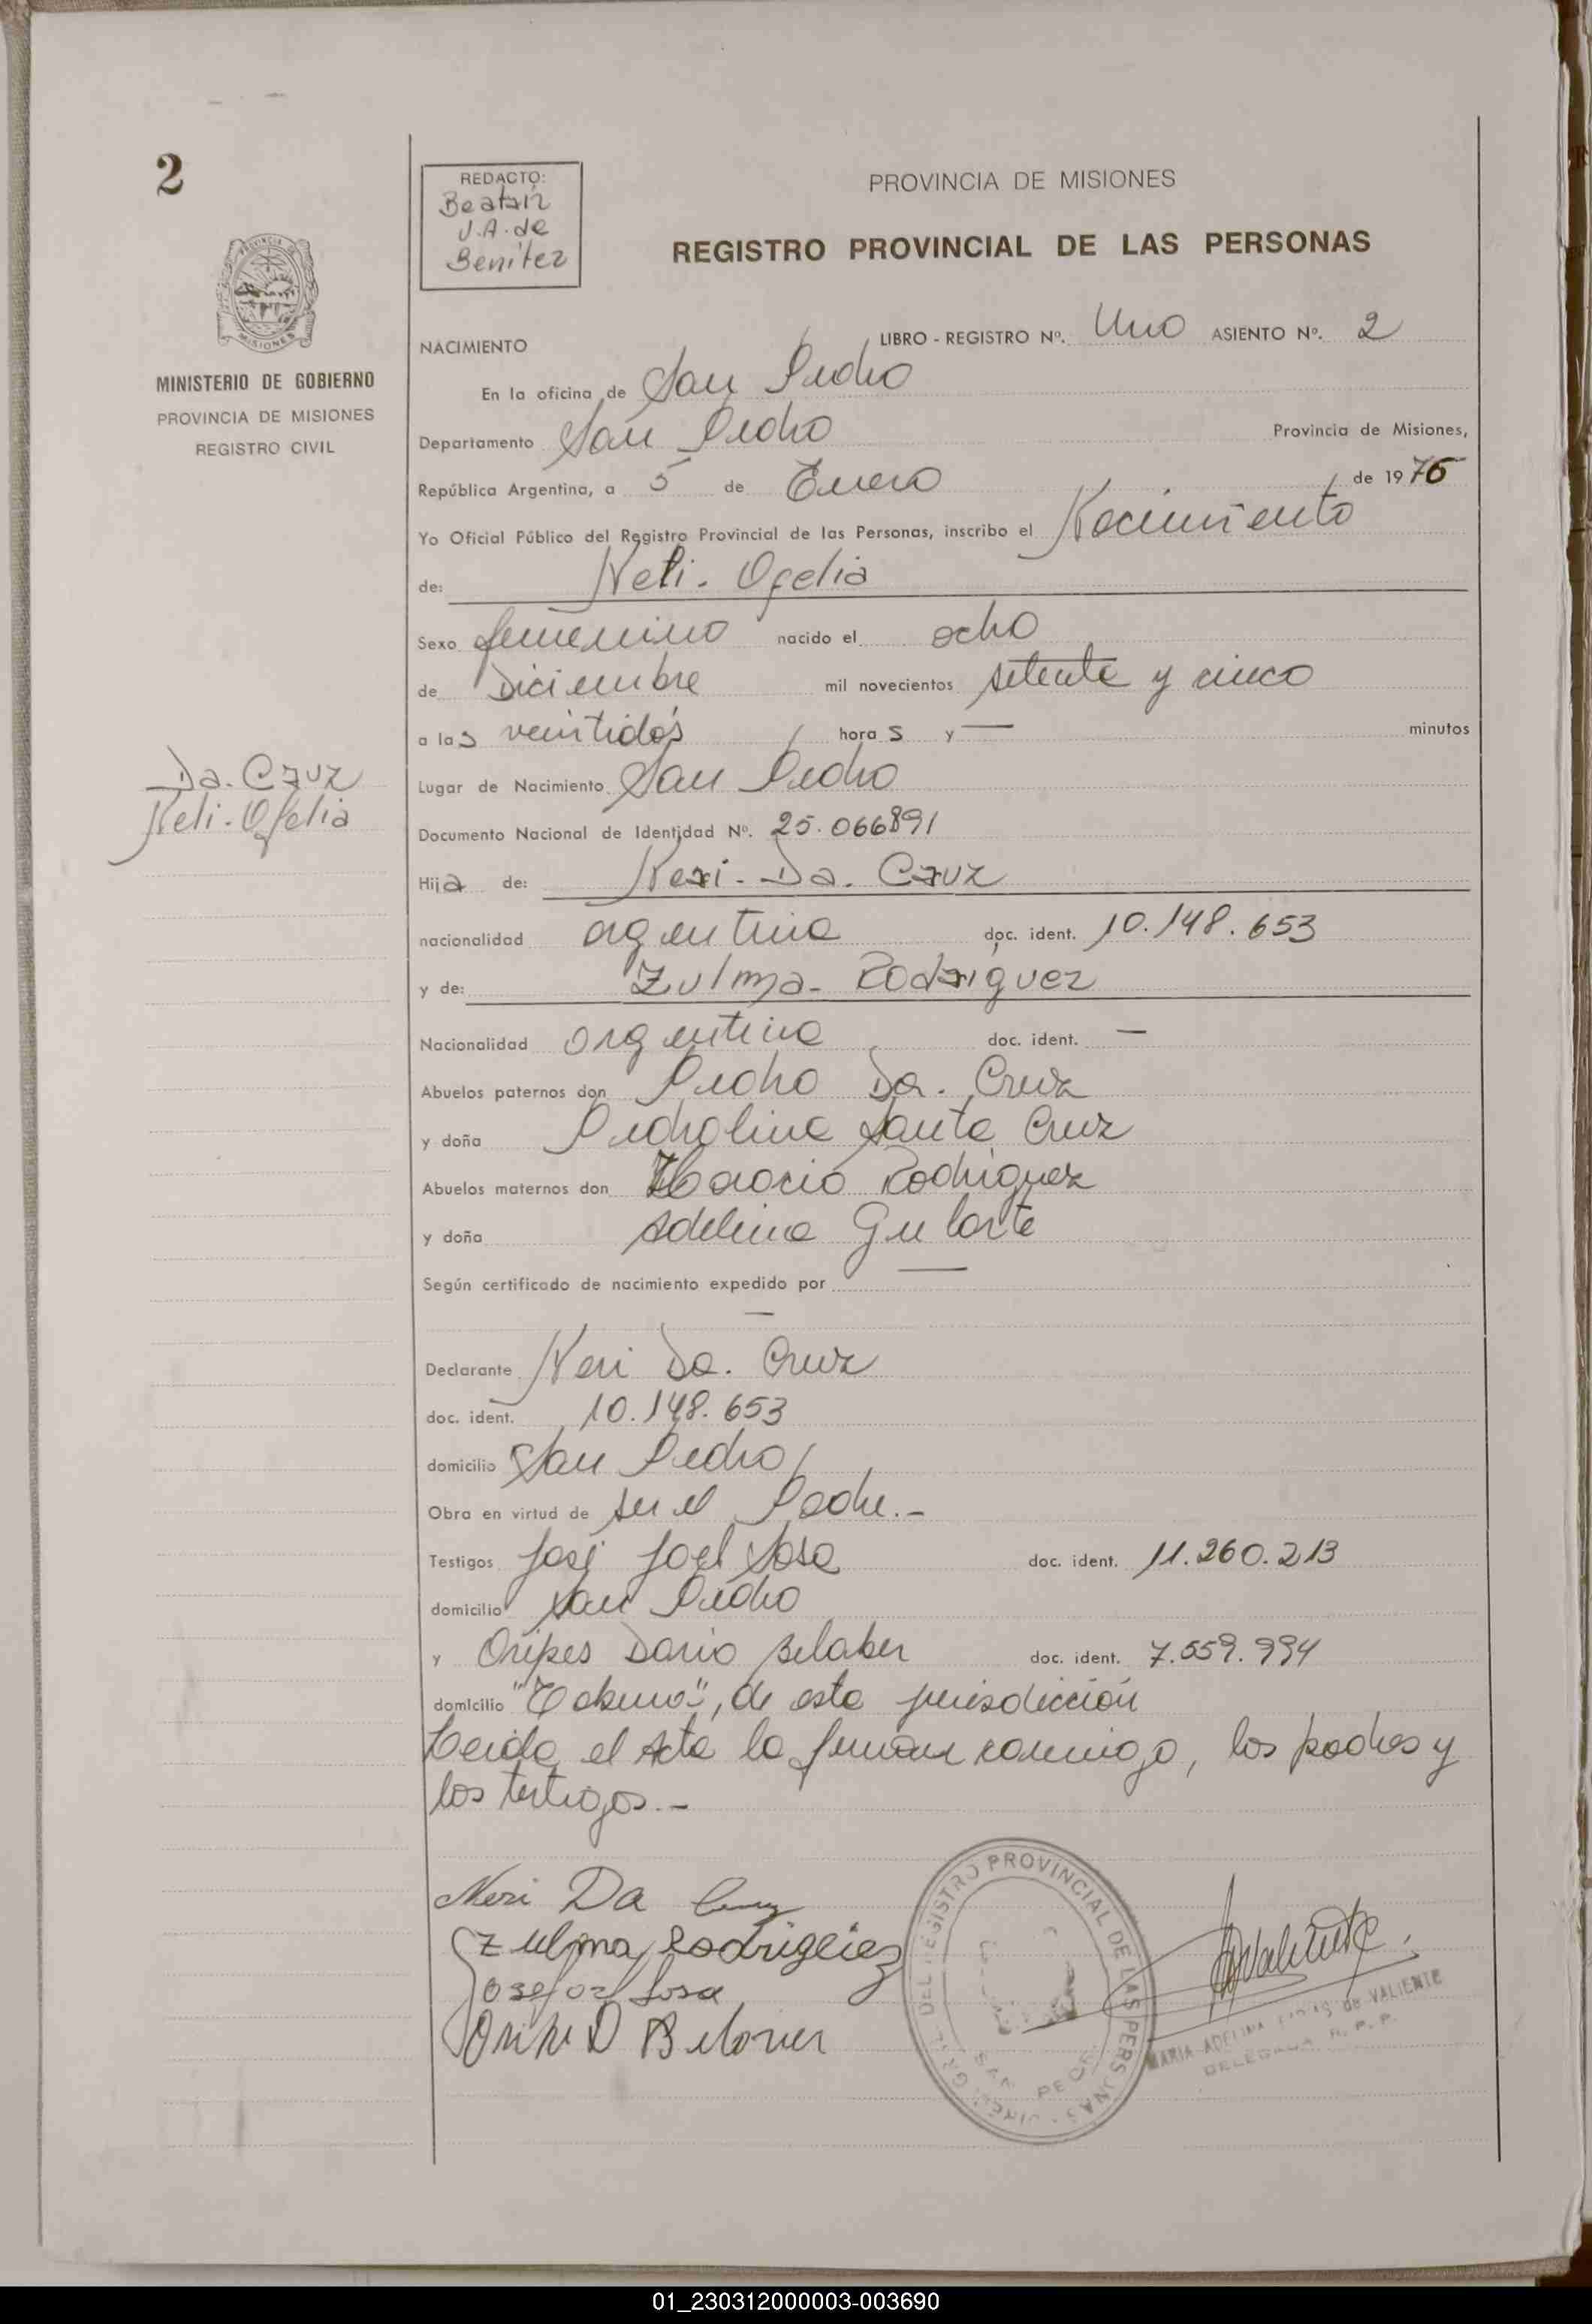 2
REDACTO:
Beatriz
V.A. de
Benítez
PROVINCIA DE MISIONES
REGISTRO PROVINCIAL DE LAS PERSONAS
MINISTERIO DE GOBIERNO
PROVINCIA DE MISIONES
REGISTRO CIVIL
NACIMIENTO
LIBRO - REGISTRO Nº. Uno ASIENTO Nº. 2
En la oficina de San Pedro
Departamento San Pedro Provincia de Misiones,
República Argentina, a 5 de Enero de 1976
Yo Oficial Público del Registro Provincial de las Personas, inscribo el Nacimiento
de: Neli. Ofelia
Sexo femenino nacido el ocho
de Diciembre mil novecientos setenta y cinco
a las veintidós horas y — minutos
Da. Cruz
Neli. Ofelia
Lugar de Nacimiento San Pedro
Documento Nacional de Identidad Nº. 25.066891
Hija de: Neri - Da. Cruz
nacionalidad argentina doc. ident. 10.148.653
y de: Zulma - Rodríguez
Nacionalidad argentina doc. ident. —
Abuelos paternos don Pedro Da. Cruz
y doña Pedrolina Santa Cruz
Abuelos maternos don Horacio Rodríguez
y doña Adelina Gularte
Según certificado de nacimiento expedido por —
—
Declarante Neri Da. Cruz
doc. ident. 10.148.653
domicilio San Pedro
Obra en virtud de ser el Padre.-
Testigos José Joel Sosa doc. ident. 11.260.213
domicilio San Pedro
y Oripes Dario Belaber doc. ident. 7.559.994
domicilio de esta jurisdicción
Leída el Acta la firman conmigo, los padres y
los testigos.-
Neri Da Cruz
Zulma Rodriguez
Jose Joel Sosa
REGISTRO PROVINCIAL DE LAS PERSONAS
SAN PEDRO
MARIA ADELINA de VALIENTE
DELEGADA R. P. P.
01_230312000003-003690